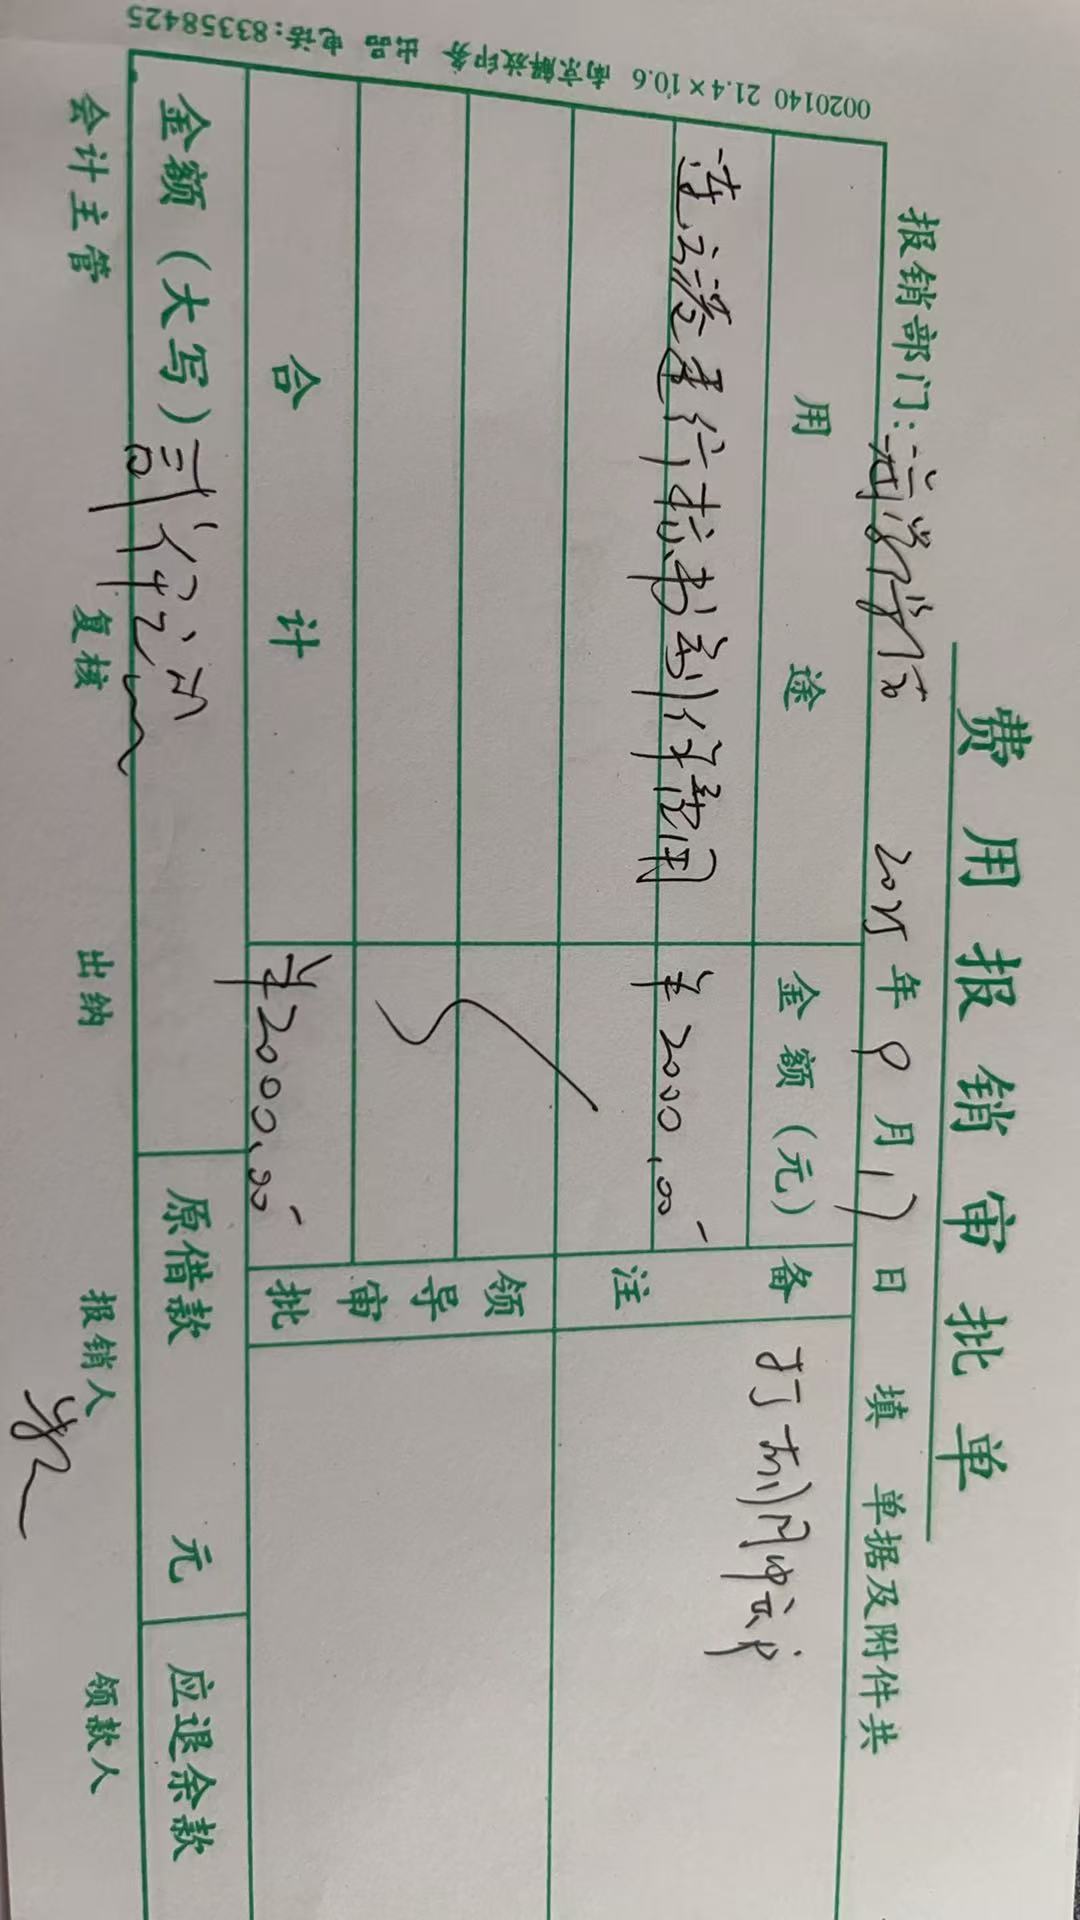 费用报销审批单
报销部门: 2025年9月17日填 单据及附件共
用途 金额(元) 备注
连云港建行标书制作费用 ¥2000.00
领导审批
合计 ¥2000.00
金额(大写)贰仟元 原借款 元 应退余款
会计主管 复核 出纳 报销人 领款人
0020140 21.4×10.6 南京解放印务 出品 电话:83358425